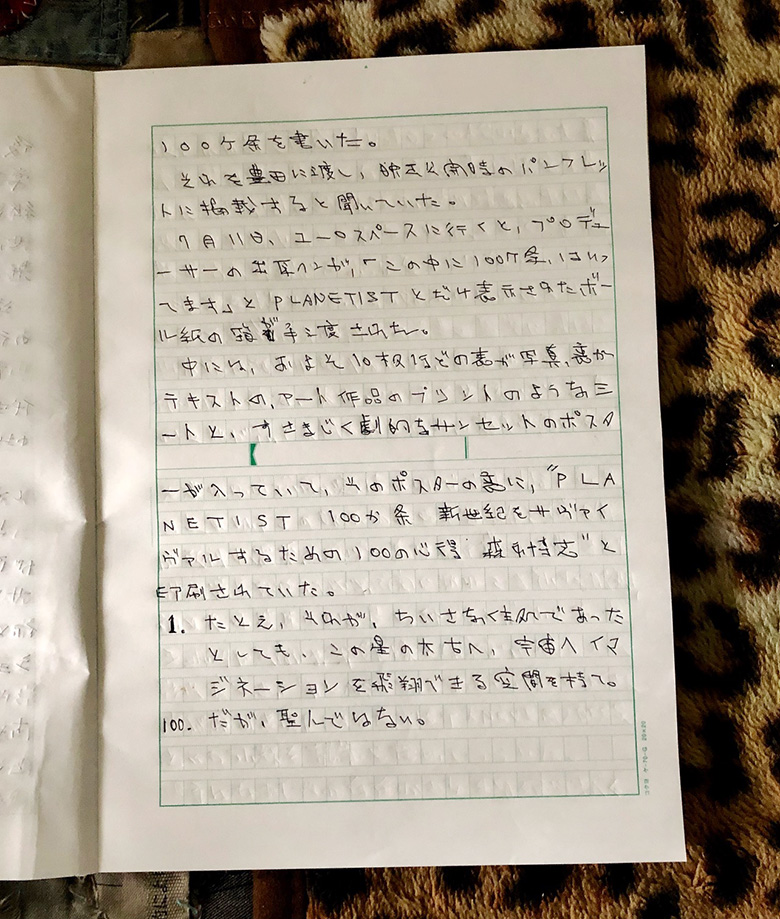 100ケ条を書いた。
それを豊田に渡し、映画公開時のパンフレッ
トに掲載すると聞いていた。
7月11日、ユーロスペースに行くと、プロデュ
ーサーの出耳へンが、「この中に100ケ条、はいっ
てます」とPLANETISTとだけ表示されたボー
ル紙の箱を手渡された。
中には、およそ10枚ほどの表が写真、裏が
テキストの、アート作品のプリントのようなシ
ートと、すさまじく劇的なサンセットのポスタ
ーが入っていて、そのポスターの裏に、"PLA
NETIST 100か条 新世紀をサヴァイ
ヴァルするための100の心得 森永博志"と
印刷されていた。
1. たとえ、それが、ちいさな住処であった
としても、この星の太古へ、宇宙へイマ
ジネーションを飛翔できる空間を持て。
100. だが、死んではない。
コクヨ ケ-75 20×20